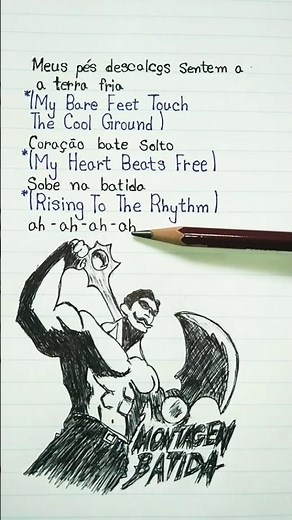 Meus pés descalços Sentem a
a terra fria
*(My Bare Feet Touch
The Cool Ground)
Coração bate Solto
*(My Heart Beats Free)
Sobe na batida
*(Rising To The Rhythm)
ah-ah-ah-ah
MONTAGEM
BATIDA